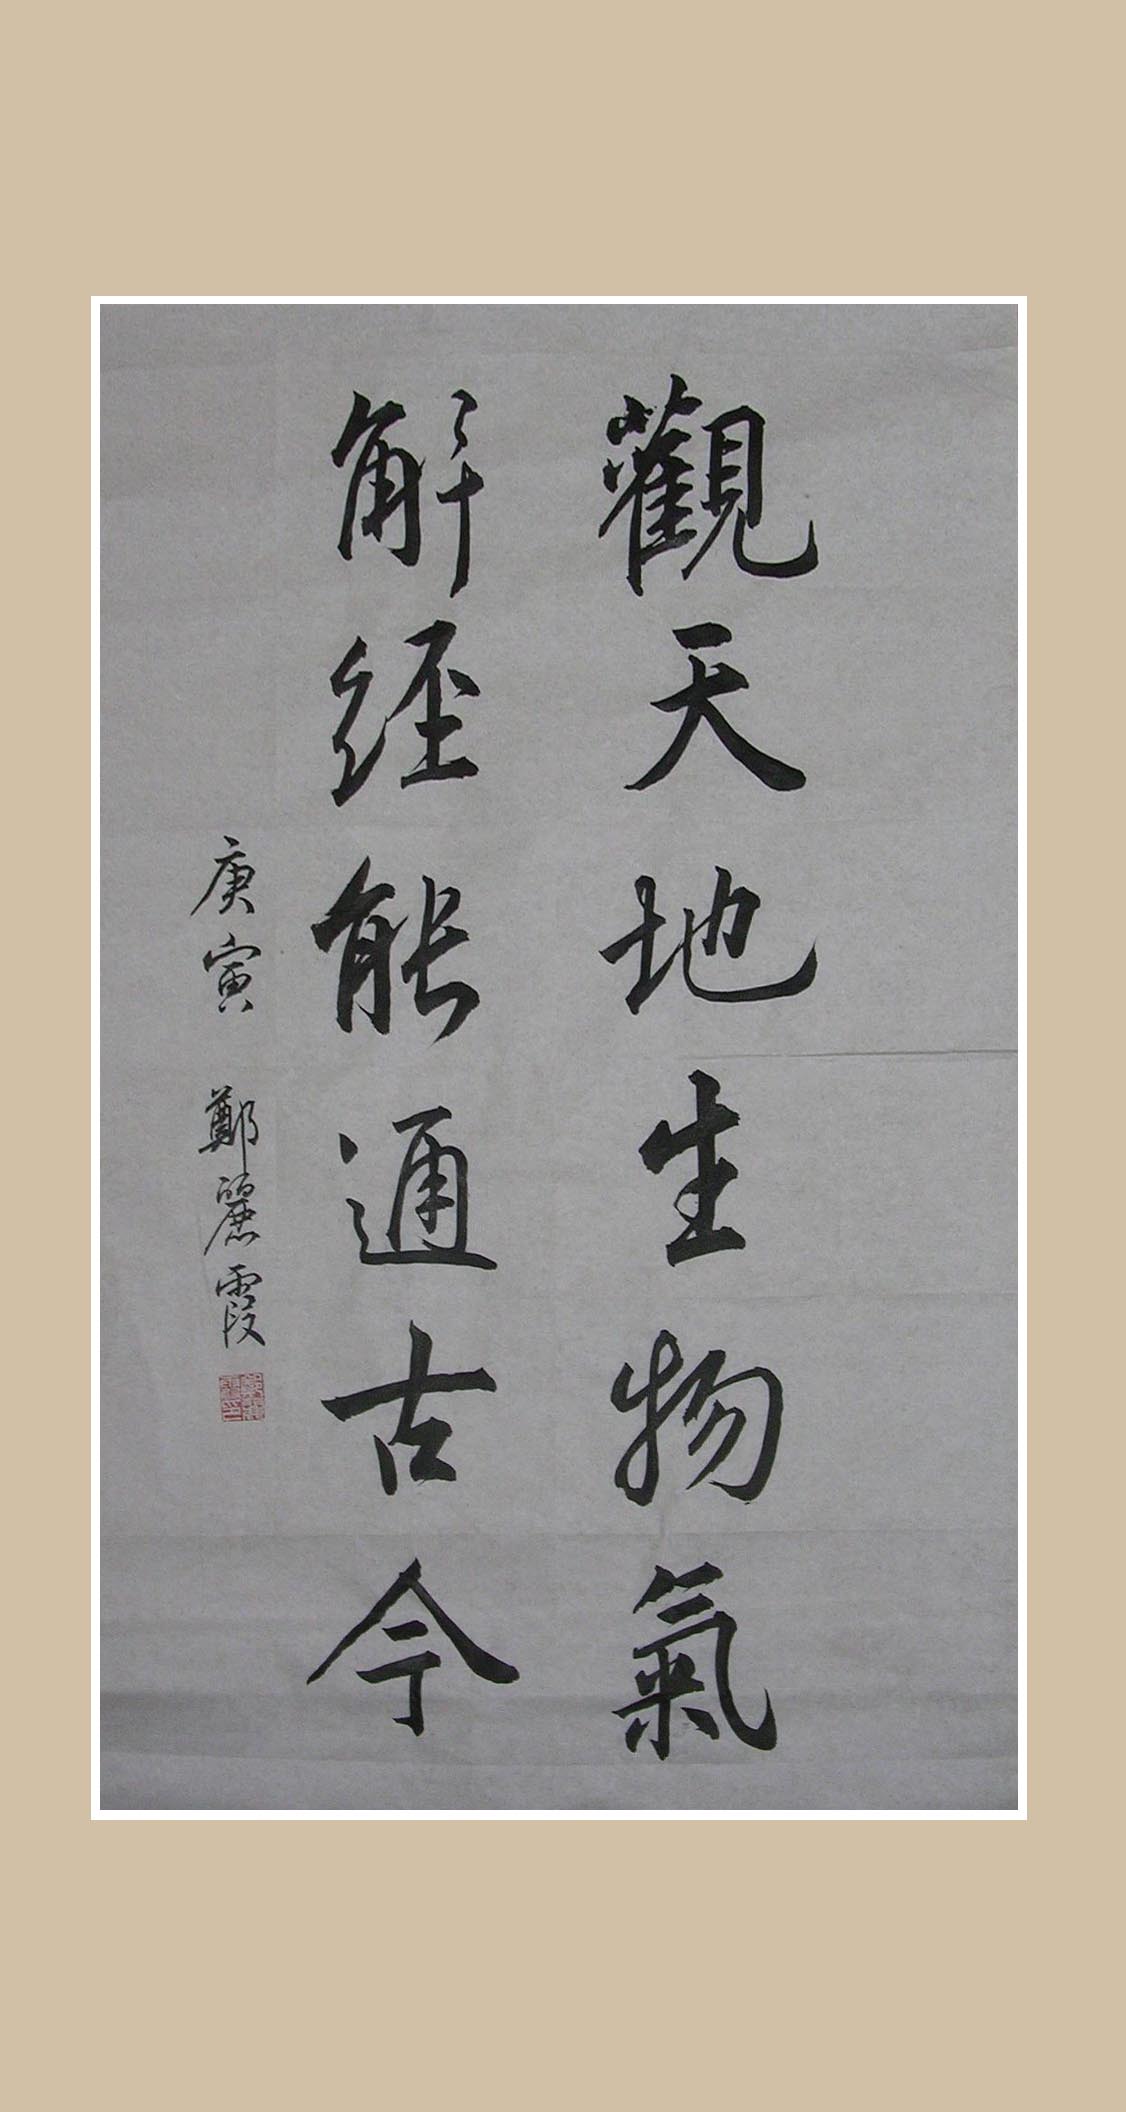 觀天地生物氣
解經能通古今
庚寅 鄭麗霞